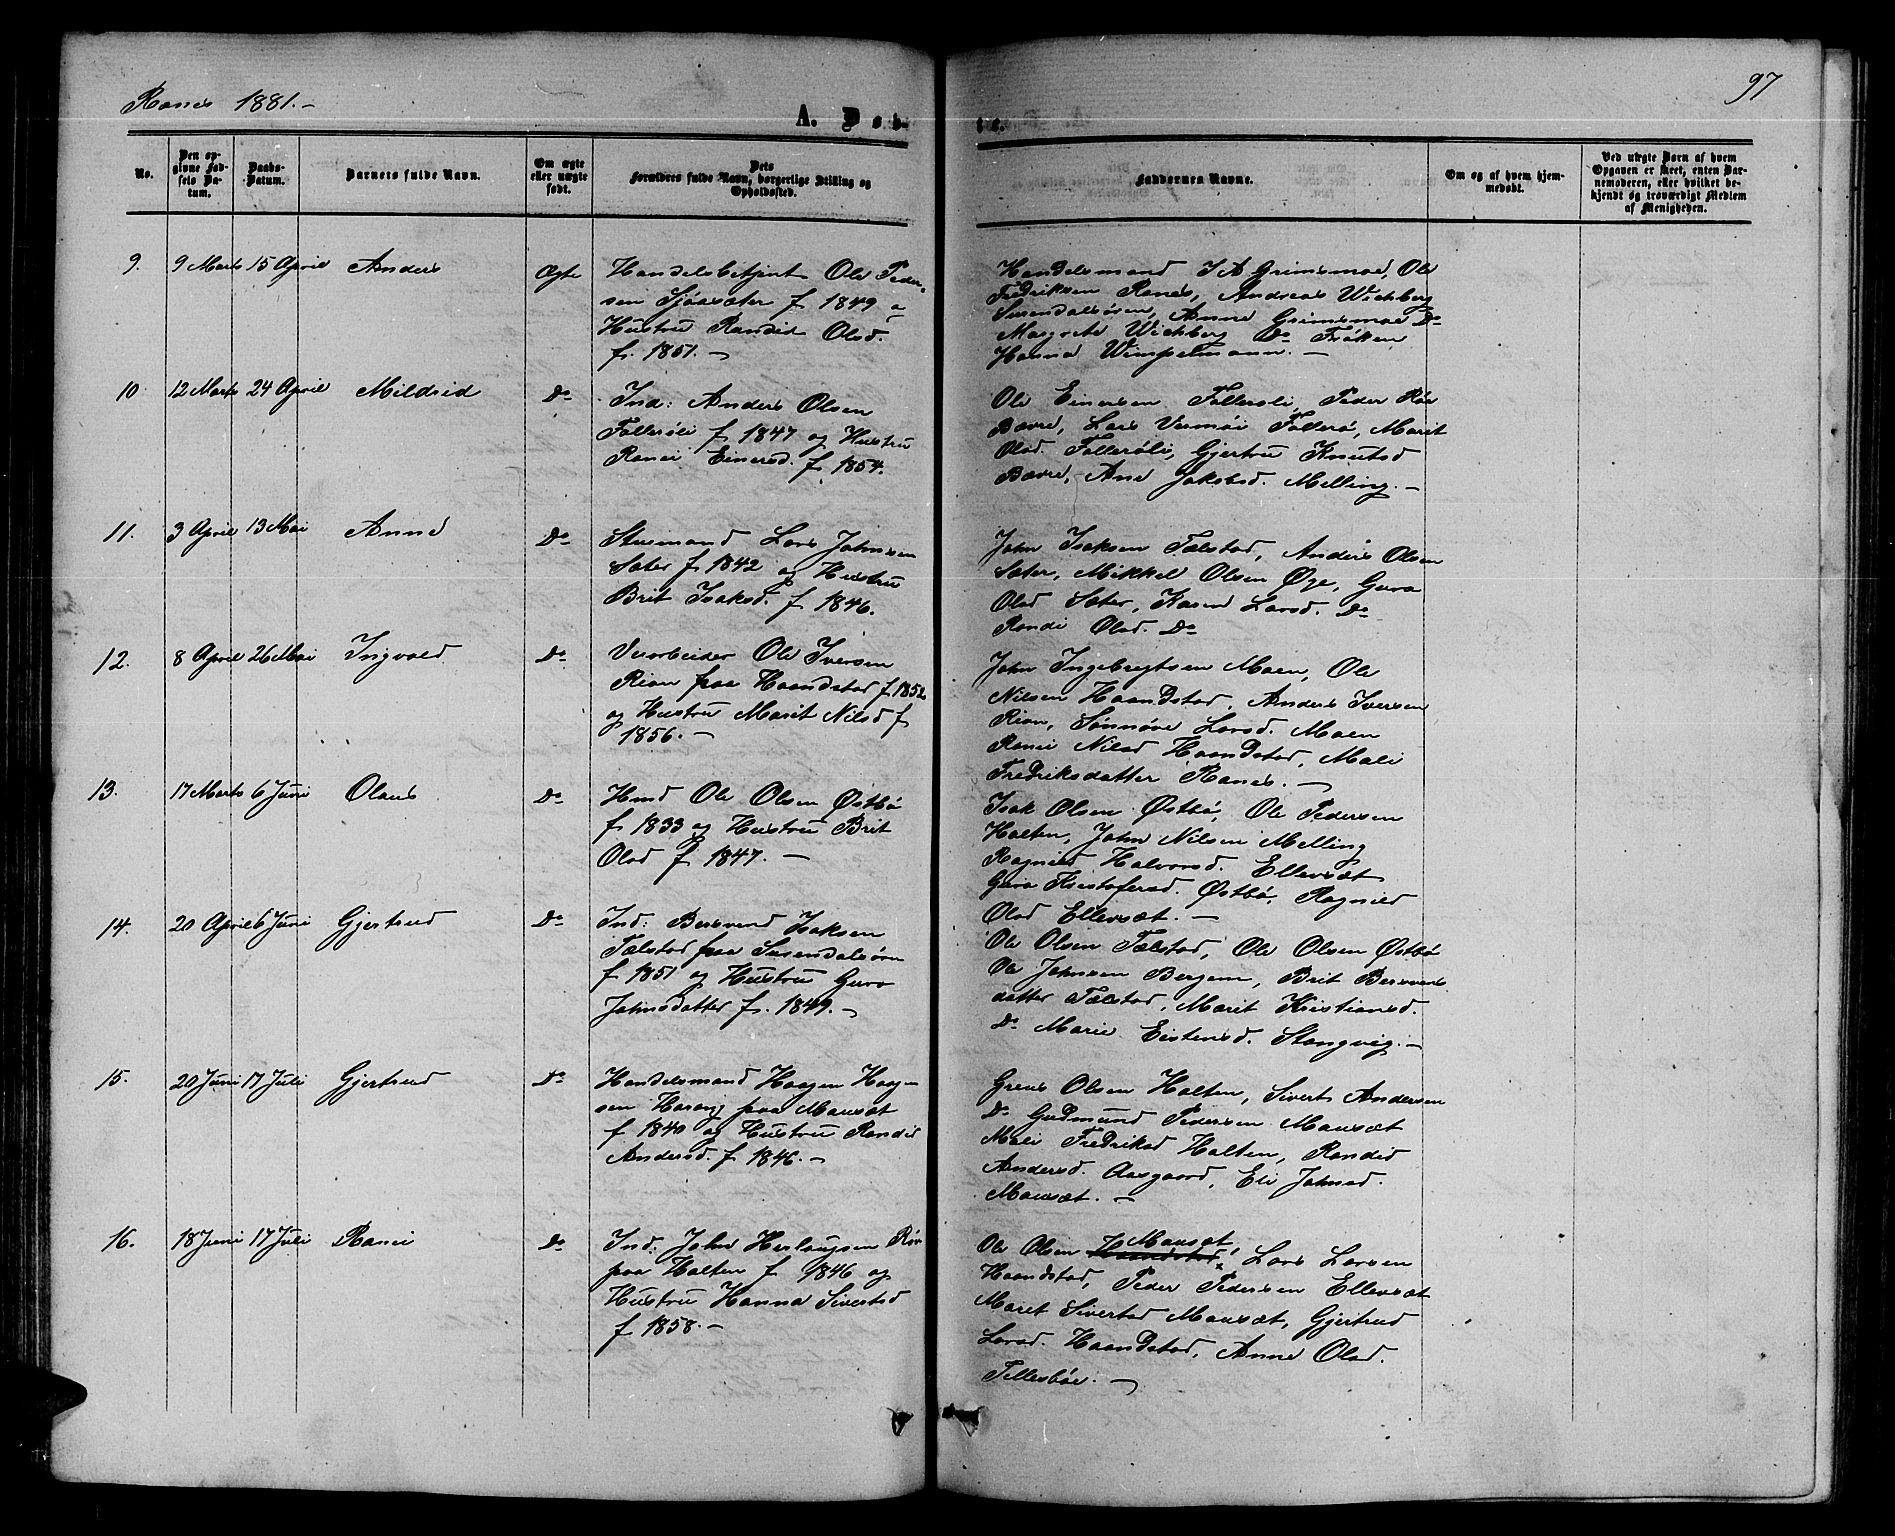 Ranes 1881.-
97
A. Døb-
te.
No.
Den op-
givne Fød-
sels Da-
tum.
Daabs-
Datum.
Barnets fulde Navn.
Om ægte
eller uægte
født.
Dets
Forældres fulde Navn, borgerlige Stilling og
Opholdssted.
Faddernes Navne.
Om og af hvem hjem-
medøbt.
Ved uægte Børn af hvem
Opgaven er skeet, enten Bar-
nemoderen, eller hvilket be-
kjendt og troværdigt Medlem
af Menigheden.
9. 9 Marts 15 April Anders Ægte
Handelsbetjent Ole Peder-
sen Sjöasæter f 1849 og
Hustru Randid Olsd.
f. 1851. -
Handelsmand I A Grimsmoe, Ole
Fredriksen Ranes, Andreas Wichberg
Surendalsören, Anne Grimsmoe Do
Margrete Wichberg Do Fröken
Hanna Wimpelmann. -
10. 12 Marts 24 April Mildrid Do
Ind: Anders Olsen
Følleröli f 1847 og Hustru
Ranei Einersd. f 1854.
Ole Einersen Følleröli, Peder Röe
Bævre, Lars Vermöi Föllerö, Marit
Olsd. Følleröli, Gjertru Knutsd
Bævre, Ane Jakobsd. Melling. -
11. 3 April 13 Mai Anne Do
Sturmand Lars Johnsen
Sæter f 1842 og Hustru
Brit Isaksd. f 1846.
John Isaksen Tælstad, Anders Olsen
Sæter, Mikkel Olsen Øye, Guro
Olsd Sæter, Karen Larsd. Do
Randi Olsd. Do
12. 8 April 26 Mai Ingvald Do
Veiarbeider Ole Iversen
Rian paa Haandstad f 1852
og Hustru Marit Nilsd f
1856. -
John Ingebregtsen Moen, Ole
Nilsen Haandstad, Anders Iversen
Rian, Sønnöve Larsd. Moen
Ranei Nilsd Haandstad, Mali
Fredriksdatter Ranes. -
13. 17 Marts 6 Juni Olaus Do
Hmd Ole Olsen Østbö
f 1833 og Hustru Brit
Olsd f 1847. -
Isak Olsen Østbö, Ole Pedersen
Holten, John Nilsen Melling
Ragnild Halvorsd. Ellevsæt
Guro Kristofersd. Østbö, Ragnild
Olsd Ellevsæt. -
14. 20 April 6 Juni Gjertrud Do
Ind: Bersvend Isaksen
Tælstad paa Surendalsörn
f 1851 og Hustru Guro
Johnsdatter f. 1849. -
Ole Olsen Tælstad, Ole Olsen Østbö
Ole Johnsen Bergem, Brit Bersvens
datter Tælstad, Marit Kristiansd.
Do Marie Eistensd. Stangvig. -
15. 20 Juni 17 Juli Gjertrud Do
Handelsmand Haagen Haag-
sen Harang paa Mausæt
f 1840 og Hustru Randid
Andersd. f 1846. -
Grens Olsen Holten, Siverts Andersen
Do Gudmund Pedersen Mausæt
Mali Fredriksd Holten, Randid
Andersd. Aasgaard, Eli Johnsd.
Mausæt. -
16. 18 Juni 17 Juli Ranei Do
Ind: John Herlaugsen Röv
paa Holten f 1846 og
Hustru Hanna Sivertsd
f 1858. -
Mausæt
Ole Olsen Haandstad, Lars Larsen
Haandstad, Peder Pedersen Ellevsæt
Marit Sivertsd Mausæt, Gjertrud
Larsd. Haandstad, Anne Olsd.
Tellesböe. -